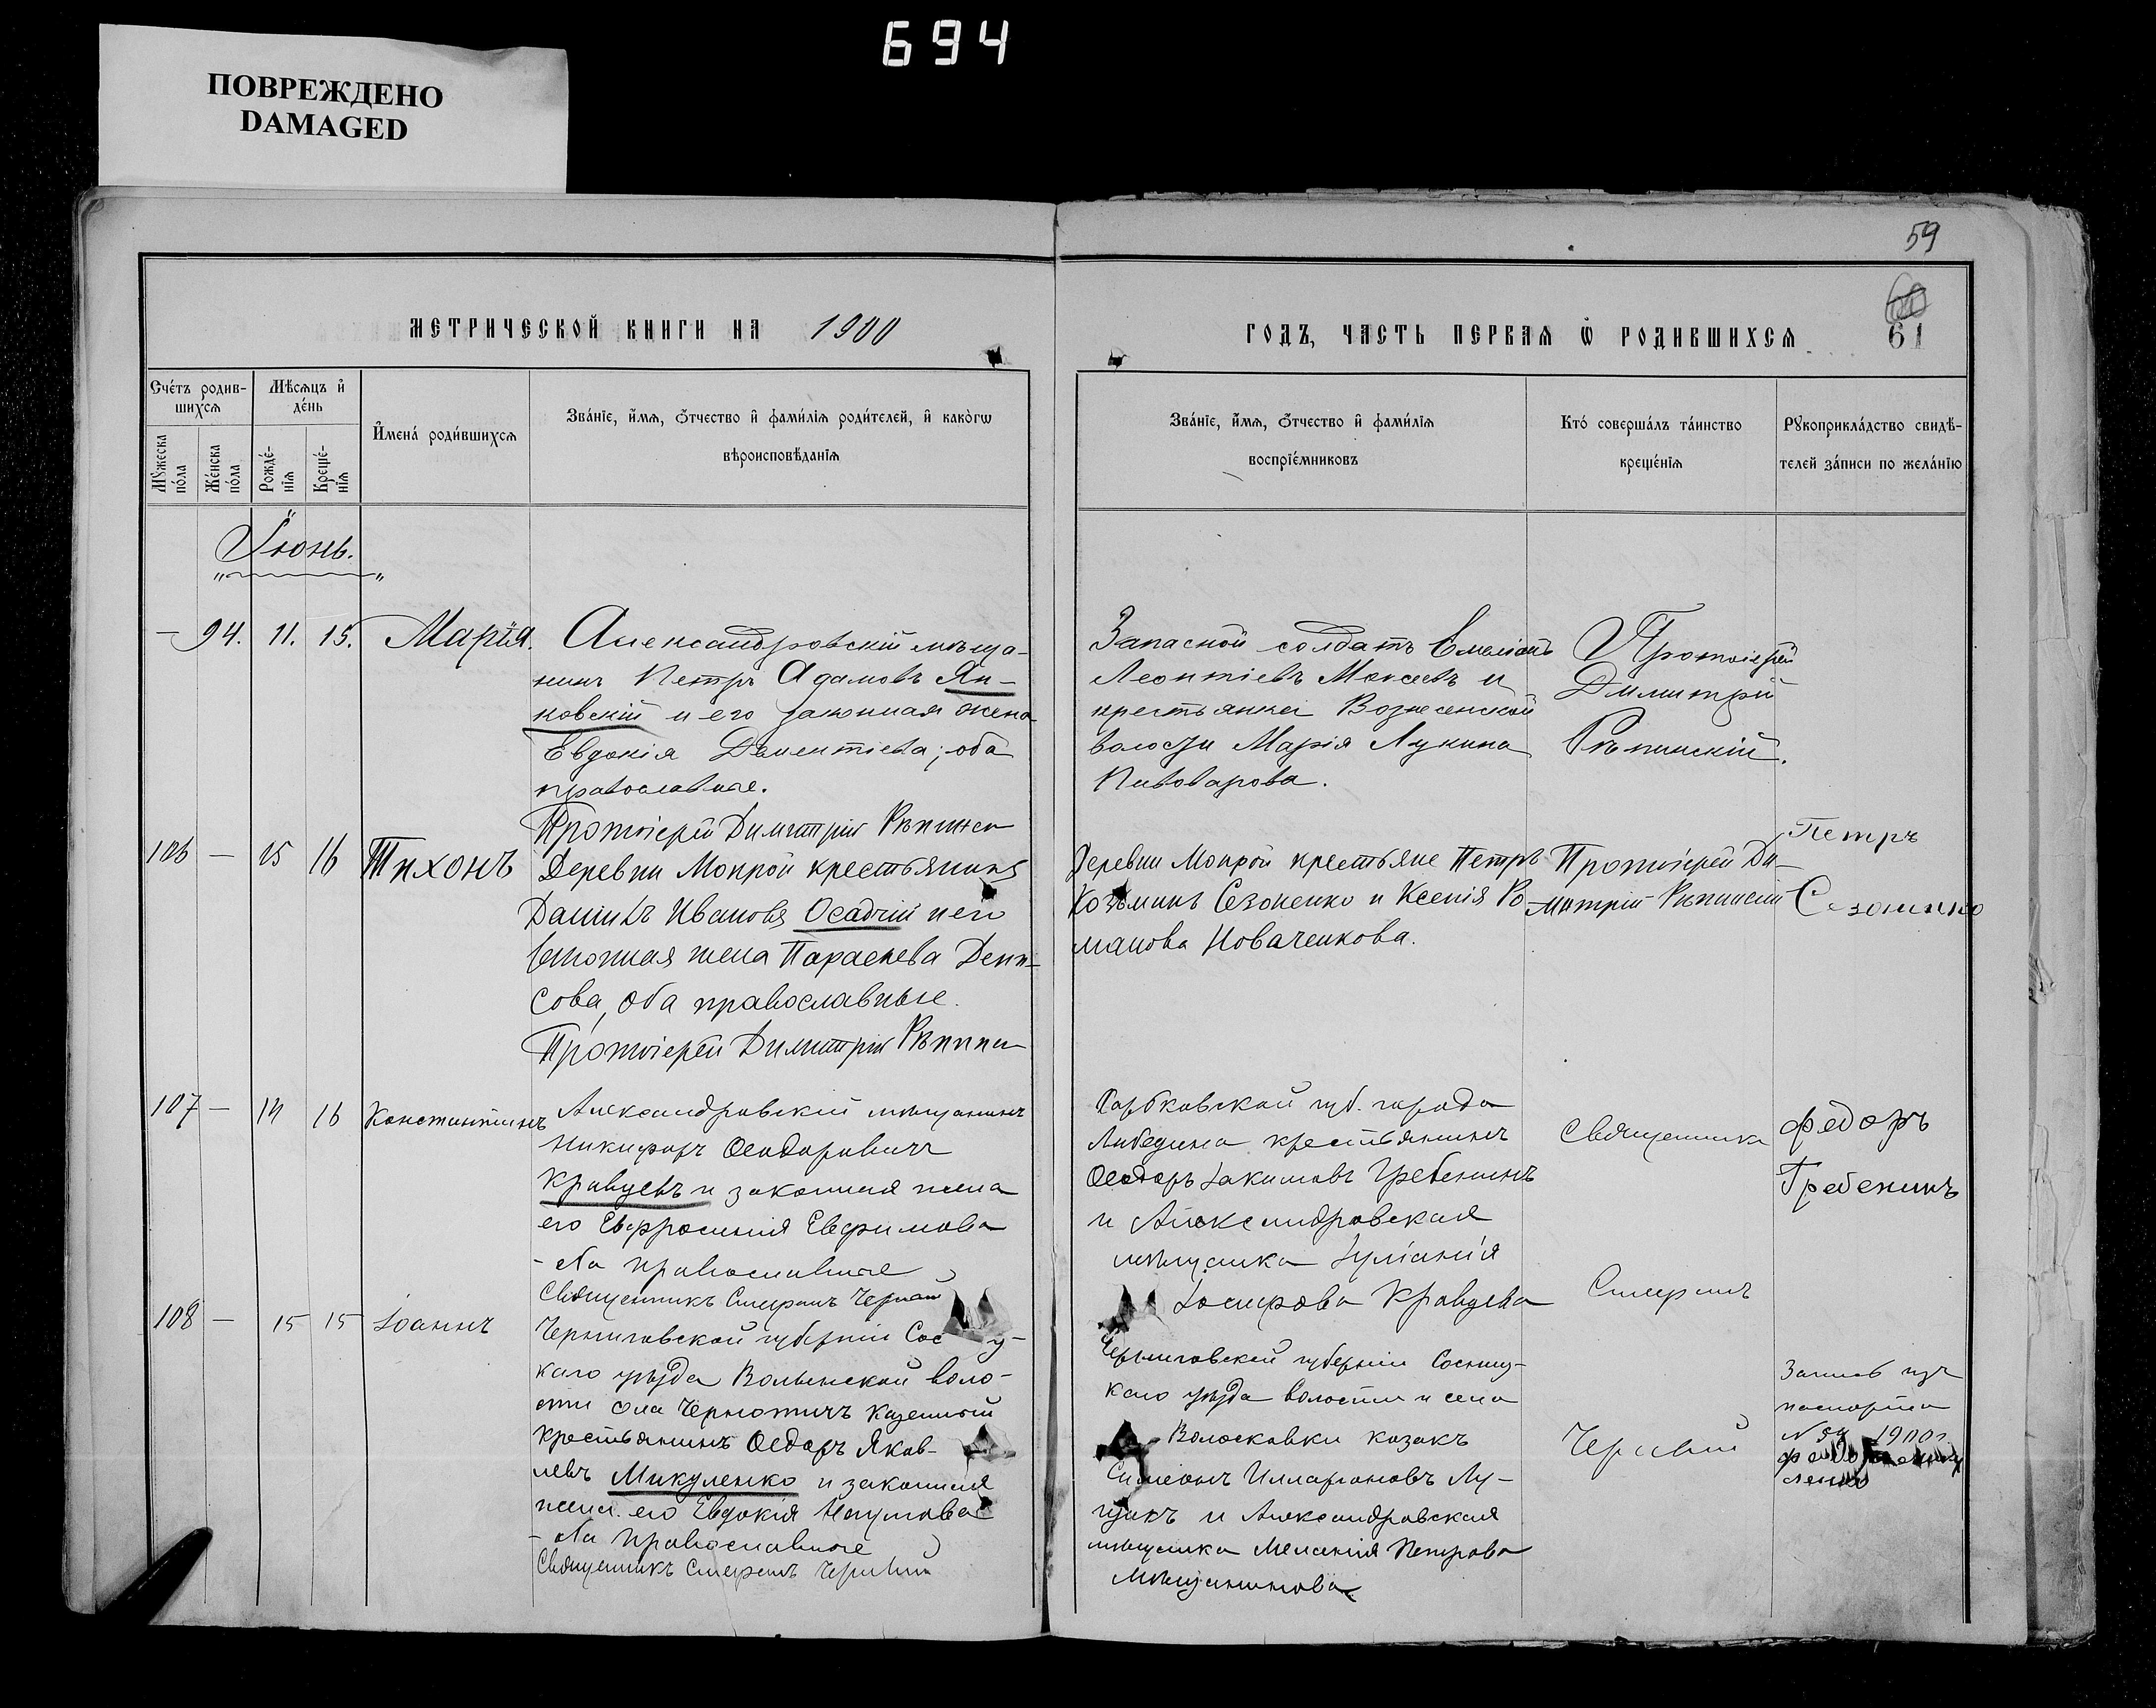 694
ПОВРЕЖДЕНО
DAMAGED
59
МЕТРИЧЕСКОЙ КНИГИ НА 1900
ГОДЪ, ЧАСТЬ ПЕРВАѦ Ѿ РОДИВШИХСѦ
61
Счéтъ родив-
шихсѧ
Мѣсѧцъ и҆
дéнь
Мꙋжеска
пóла
Жéнска
пóла
Рождé-
нїѧ
Крещé-
нїѧ
И҆мена́ роди́вшихсѧ
Зва́нїе, и҆́мѧ, ѻ҆́тчество и҆ фами́лїѧ роди́телей, и҆ како́гѡ
вѣроисповѣ́данїѧ
Зва́нїе, и҆́мѧ, ѻ҆́тчество и҆ фами́лїѧ
воспрїе́мниковъ
Кто́ соверша́лъ та́инство
креще́нїѧ
Рꙋкоприкла́дство свидѣ́-
телей за́писи по жела́нїю
Іюнь.
— 94. 11. 15. Марія.
Александровскій мѣща-
нинъ Петръ Адамовъ Ян-
ковскій и его законная жена
Евдокія Дементіева; оба
православные.
Протоіерей Димитрій Рѣпинск
Запасной солдатъ Емеліанъ
Леонтіевъ Моисеевъ и
крестьянка Вознесенской
волости Марія Лукина
Пивоварова.
Протоіерей
Димитрій
Рѣпинскій.
106 — 15 16 Тихонъ
Деревни Мокрой крестьянинъ
Даніилъ Ивановъ Осадчій и его
законная жена Параскева Дени-
сова, оба православные.
Протоіерей Димитрій Рѣпинск
Деревни Мокрой крестьяне Петръ
Козьминъ Сезоненко и Ксенія Ро-
манова Новаченкова.
Протоіерей Ди-
митрій Рѣпинскій
Петръ
Сезоненко
107 — 14 16 Константинъ
Александровскій мѣщанинъ
Никифоръ Ѳеодоровичъ
Кравцевъ и законная жена
его Евфросинія Евфимова
- оба православные
Священникъ Стефанъ Чернай
Харьковской губ. города
Лебедина крестьянинъ
Ѳеодоръ Іакимовъ Гребенинъ
и Александровская
мѣщанка Іуліанія
Іосифова Кравцева
Священникъ
Стефанъ
Федоръ
Гребенинъ
108 — 15 15 Іоаннъ
Черниговской губерніи Сос у-
каго уѣзда Волынской воло-
сти села Чернотичъ казенный
крестьянинъ Ѳедоръ Яков-
левъ Микуленко и законная
жена его Евдокія Наумова
- оба православные
Священникъ Стефанъ
Черниговской губерніи Сосниц-
каго уѣзда волости и села
Волосковки козакъ
Симеонъ Илларіоновъ Лу-
цикъ и Александровская
мѣщанка Меланія Петрова
Мѣщанинова
Запись изъ
паспорта
№ 54 1900 г.